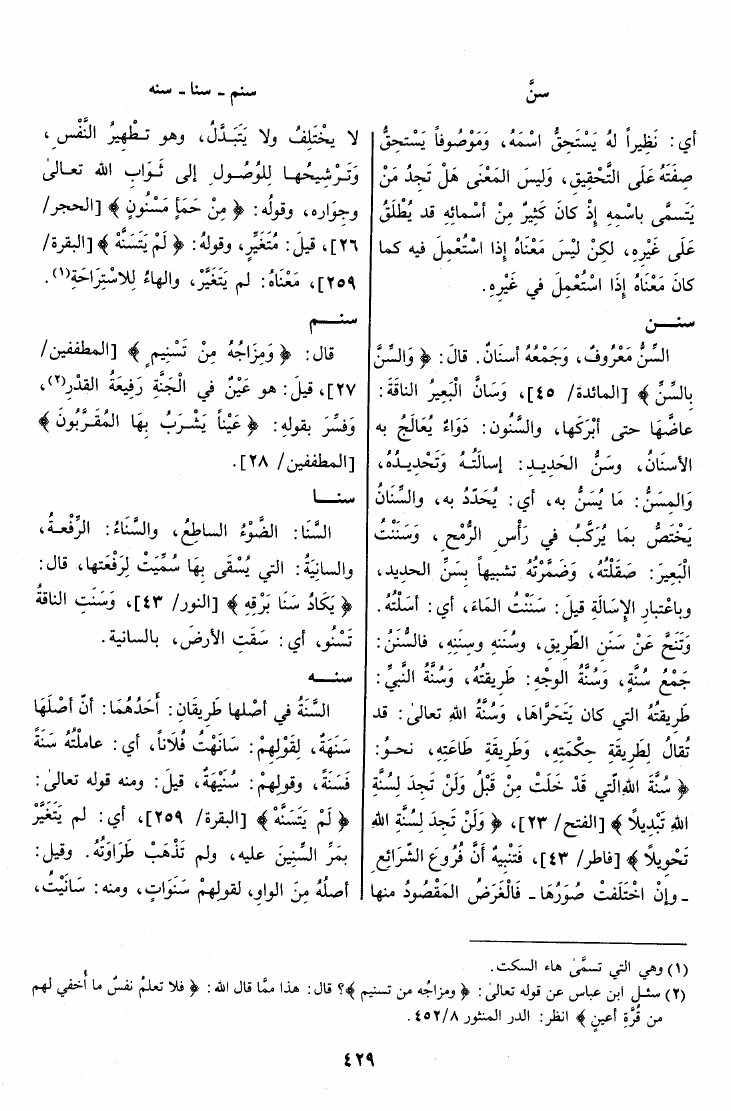 سنَّ
سنم ـ سنا ـ سنه
أي: نَظِيراً لهُ يَسْتَحِقُّ اسْمَهُ، وَمَوْصُوفاً يَسْتحِقُّ
صِفَتَهُ عَلَى التَّحْقِيق، وَليسَ المَعْنى هَلْ تَجِدُ مَنْ
يَتَسمَّى باسْمِهِ إذْ كانَ كَثِيرٌ مِنْ أسْمائِهِ قد يُطْلَقُ
عَلَى غَيْرِهِ، لكِنْ لَيْسَ مَعْنَاهُ إذا اسْتُعْمِلَ فيه كما
كانَ مَعْنَاهُ إذَا اسْتُعْمِلَ في غَيْرِهِ.
سنــن
السِّنُّ مَعْرُوفٌ، وَجَمْعُهُ أسنَانٌ. قالَ: ﴿ وَالسِّنَّ
بِالسِّنِّ ﴾ [المائدة/ ٤٥]، وَسَانَّ الْبَعِيرُ الناقَةَ:
عاضَّهَا حتى أبْرَكَها، والسَّنُون: دَوَاءٌ يُعَالَجُ به
الأسنَانُ، وسَنُّ الحَدِيدِ: إسالَتُهُ وَتَحْدِيدُهُ،
وَالمِسَنُّ: مَا يُسَنُّ به، أي: يُحَدّدُ به، والسِّنَانُ
يَخْتَصُّ بمَا يُرَكَّبُ في رَأْسِ الرُّمْحِ، وَسَنَنْتُ
الْبَعِيرَ: صَقَلْتُهُ، وَضَمَّرْتُهُ تشبيهاً بِسَنِّ الحديد،
وباعْتِبارِ الإسَالَةِ قيلَ: سَنَنْتُ المَاءَ، أي: أسَلْتُهُ.
وَتَنَحَّ عَنْ سَنَنِ الطَّرِيقِ، وسُنَنِهِ وسِنَنِهِ، فالسُّنَنُ:
جَمْعُ سُنَّةٍ، وَسُنَّةُ الوَجْهِ: طَرِيقَتُهُ، وَسُنَّةُ النَّبِيِّ:
طَرِيقَتُهُ التي كان يَتَحَرَّاهَا، وَسُنَّةُ اللهِ تعالىٰ: قد
تُقالُ لِطَرِيقَةِ حِكْمَتِهِ، وَطَرِيقَةِ طَاعَتِهِ، نحوُ:
﴿ سُنَّةَ اللهِ الّتي قَدْ خَلَتْ مِنْ قَبْلُ وَلَنْ تَجِدَ لِسُنَّةِ
اللهِ تَبْدِيلاً ﴾ [الفتح/ ٢٣]، ﴿ وَلَنْ تَجدَ لِسُنَّةِ اللهِ
تَحْوِيلاً ﴾ [فاطر/ ٤٣]، فَتَنْبِيهٌ أنَّ فُرُوعَ الشَّرائعِ
ـ وإنْ اخْتَلَفتْ صُوَرُهَا ـ فَالْغَرَضُ المَقْصُودُ منها
لا يخْتَلِفُ ولا يَتَبَدَّلُ، وهو تـطْهِيرُ النَّفْسِ،
وَتَرْشِيحُهـا لِلْوُصُولِ إلى ثَوَابِ اللهِ تعـالىٰ
وجِوَاره، وقولُه: ﴿ مِنْ حَمَأٍ مَسْنُونٍ ﴾ [الحجر/
٢٦]، قيلَ: مُتَغيِّرٍ، وقولهُ: ﴿ لَمْ يَتَسَنَّهْ ﴾ [البقرة/
٢٥٩]، مَعْنَاهُ: لم يَتَغَيَّرْ، والهاءُ لِلاسْتِرَاحَةِ(١).
سنــم
قال: ﴿ وَمِزَاجُهُ مِنْ تَسْنِيمٍ ﴾ [المطففين/
٢٧]، قيلَ: هو عَيْنٌ في الْجَنَّةِ رَفِيعَةُ القَدْرِ(٢)،
وَفسِّرَ بقولِهِ: ﴿ عَيْناً يَشْرَبُ بِهَا المُقَرَّبُونَ ﴾
[المطففين/ ٢٨].
سنــا
السَّنَا: الضَّوْءُ السـاطِعُ، والسَّنَاءُ: الرِّفْعـةُ،
والسانِيَةُ: التي يُسْقَى بِهَا سُمِّيَتْ لِرِفْعَتِها، قال:
﴿ يَكَادُ سَنَا بَرْقِهِ ﴾ [النور/ ٤٣]، وَسَنَتِ الناقةُ
تَسْنُو، أي: سَقَتِ الأرضَ، بالسانية.
سنــه
السَّنَةُ في أصْلها طَرِيقَانِ: أَحَدُهُمَا: أنّ أصْلَهَا
سَنَهَةٌ، لِقَوْلِهِمْ: سَانَهْتُ فُلَاناً، أي: عاملْتُهُ سَنَةً
فَسَنَةً، وقولِهِمْ: سُنَيْهَةٌ، قيلَ: ومنه قوله تعالىٰ:
﴿ لَمْ يَتَسَنَّهْ ﴾ [البقرة/ ٢٥٩]، أي: لم يَتَغَيَّرْ
بمَرِّ السِّنِينَ عليه، ولم تَذْهَبْ طَرَاوَتُهُ. وقيل:
أصلُهُ مِنَ الواوِ، لقولِهِمْ سَنَوَاتٍ، ومنه: سَانَيْتُ،
(١) وهي التي تسمَّىٰ هاء السكت.
(٢) سئـل ابن عباس عن قوله تعالىٰ: ﴿ ومزاجُه من تسنيم ﴾؟ قال: هذا ممّا قال الله: ﴿ فلا تعلمُ نفسٌ ما أُخفي لهم
من قُرَّةِ أعينٍ ﴾ انظر: الدر المنثور ٤٥٢/٨.
٤٢٩